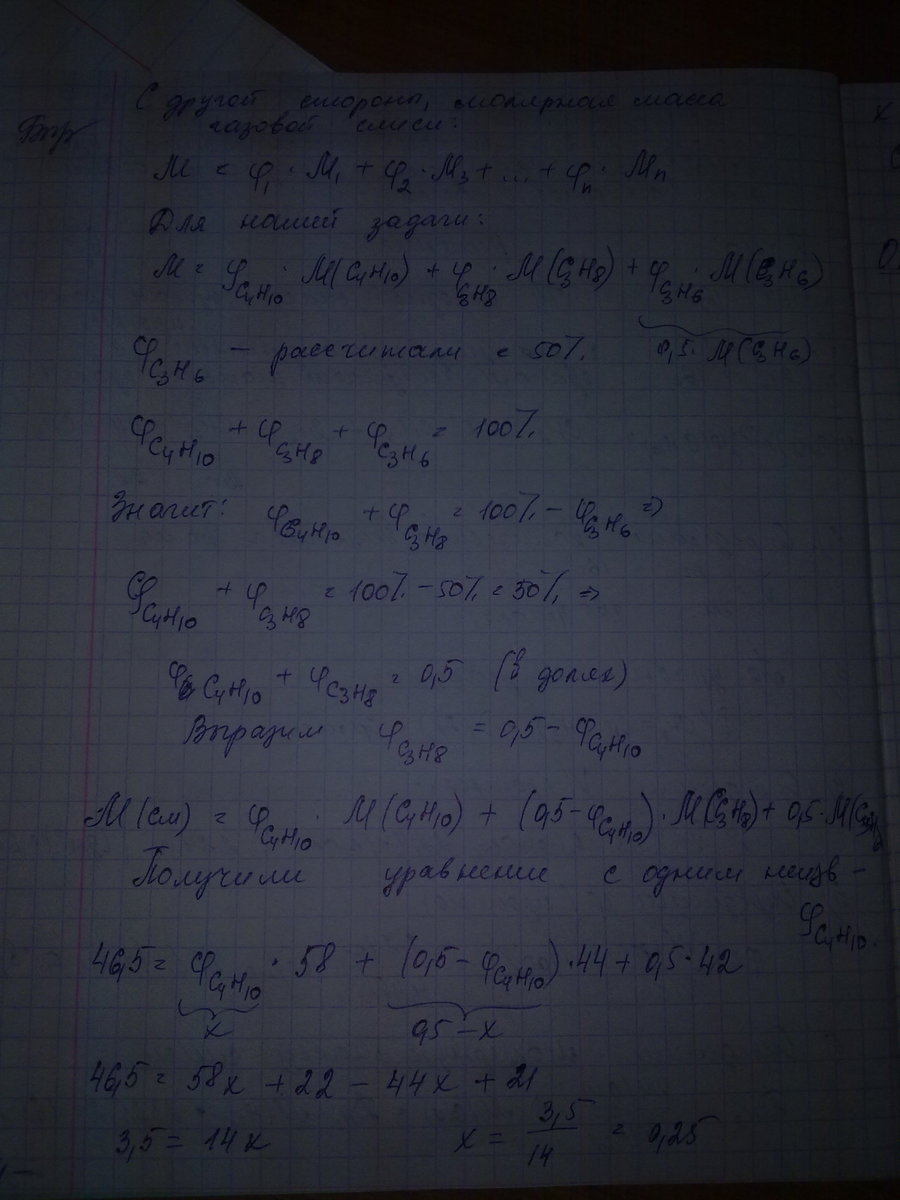 С другой стороны, молярная масса
газовой смеси:
M = φ₁ · M₁ + φ₂ · M₃ + ... + φₙ · Mₙ
Для нашей задачи:
M = φC₄H₁₀ · M(C₄H₁₀) + φC₃H₈ · M(C₃H₈) + φC₃H₆ · M(C₃H₆)
φC₃H₆ – рассчитали = 50%. 0,5 · M(C₃H₆)
φC₄H₁₀ + φC₃H₈ + φC₃H₆ = 100%
Значит: φC₄H₁₀ + φC₃H₈ = 100% – φC₃H₆ =>
φC₄H₁₀ + φC₃H₈ = 100% – 50% = 50% =>
φC₄H₁₀ + φC₃H₈ = 0,5 (в долях)
Выразим φC₃H₈ = 0,5 – φC₄H₁₀
M(см) = φC₄H₁₀ · M(C₄H₁₀) + (0,5 – φC₄H₁₀) · M(C₃H₈) + 0,5 · M(C₃H₆)
Получили уравнение с одним неизв –
φC₄H₁₀.
46,5 = φC₄H₁₀ · 58 + (0,5 – φC₄H₁₀) · 44 + 0,5 · 42
x 0,5 – x
46,5 = 58x + 22 – 44x + 21
3,5 = 14x x = 3,5/14 = 0,25